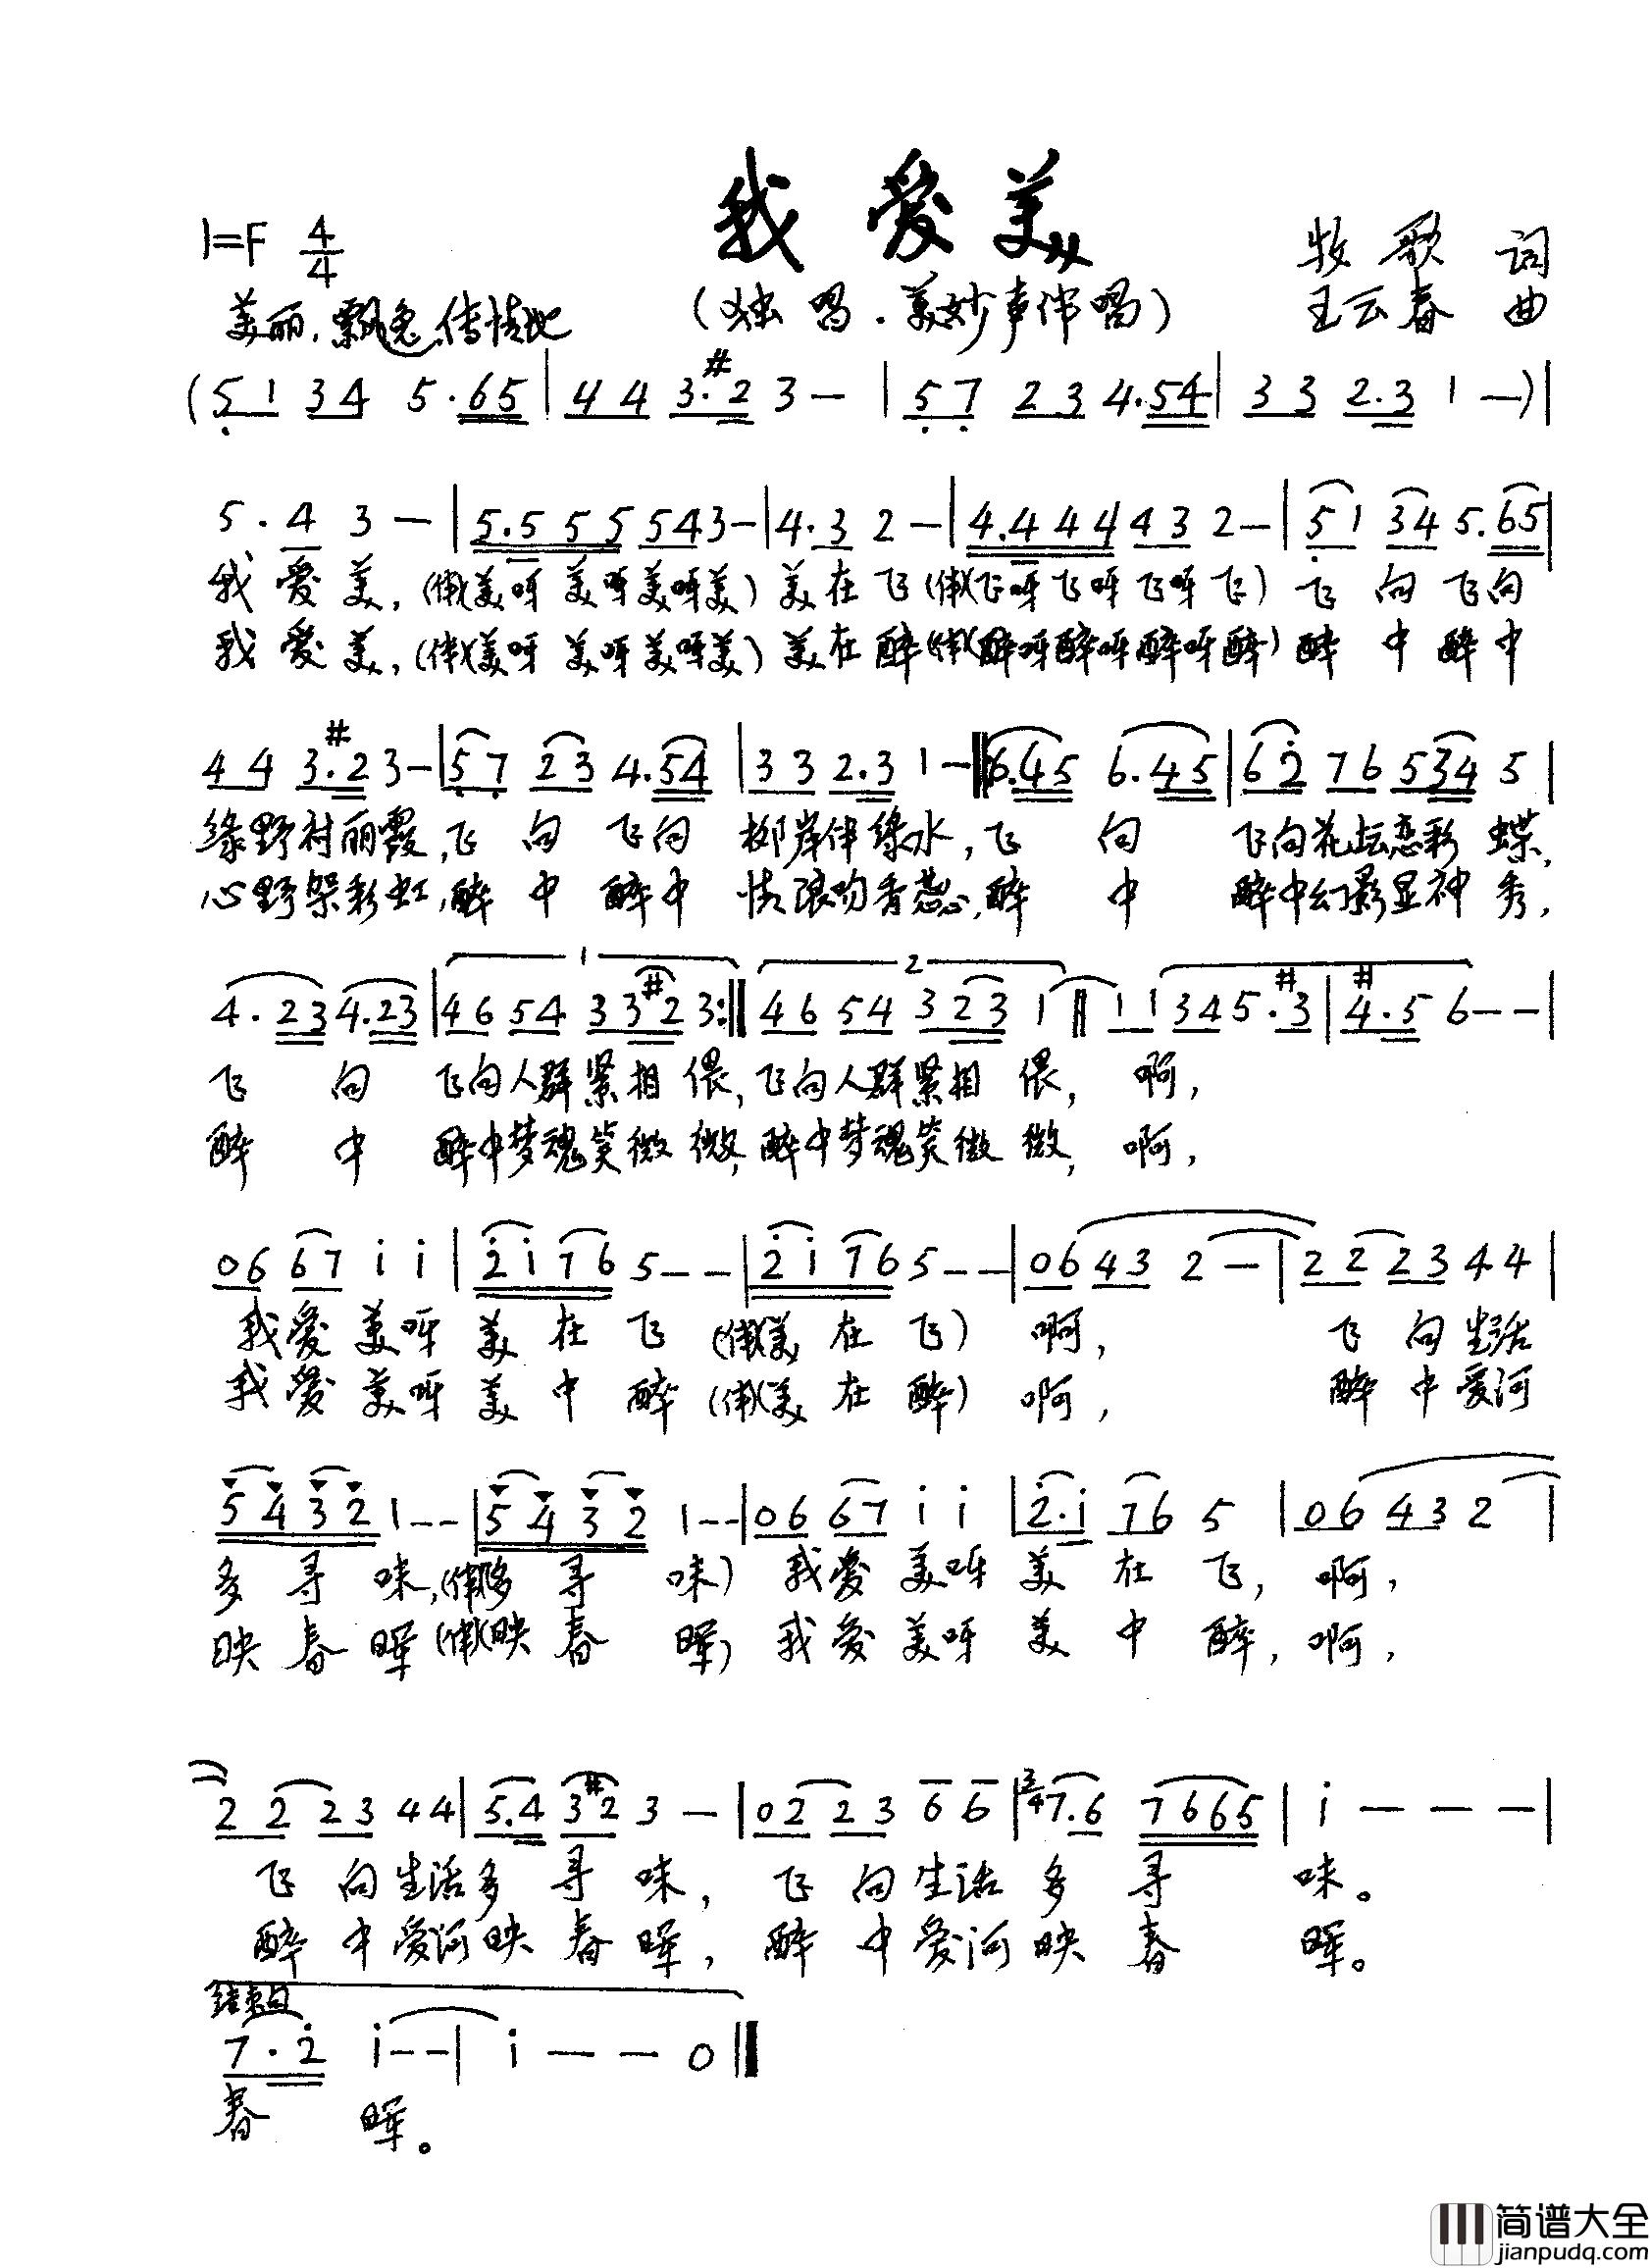 我爱美
1=F 4/4
牧歌 词
美丽、飘逸、传情地
(独唱·美妙声伴唱)
王云春 曲
(5 1 3 4 5·6 5 | 4 4 3·#2 3 — | 5 7 2 3 4·5 4 | 3 3 2·3 1 —) |
5·4 3 — | 5·5 5 5 5 4 3 — | 4·3 2 — | 4·4 4 4 4 3 2 — | 5 1 3 4 5·6 5 |
我爱美,(伴)(美呀美呀美呀美)美在飞(伴)(飞呀飞呀飞呀飞)飞向飞向
我爱美,(伴)(美呀美呀美呀美)美在醉(伴)(醉呀醉呀醉呀醉)醉中醉中
4 4 3·#2 3 — | 5 7 2 3 4·5 4 | 3 3 2·3 1 — ‖ 6·4 5 6·4 5 | 6 2 7 6 5 3 4 5 |
绿野衬丽霞,飞向飞向柳岸伴绿水,飞向 飞向花坛恋彩蝶,
心野架彩虹,醉中醉中情浪吻香蕊,醉中 醉中幻影显神秀,
4·2 3 4·2 3 | 1 4 6 5 4 3 3 #2 3 :‖ 2 4 6 5 4 3 2 3 1 ‖ 1 1 3 4 5·#3 | #4·5 6 — — |
飞向 飞向人群紧相偎,飞向人群紧相偎,啊,
醉中 醉中梦魂笑微微,醉中梦魂笑微微,啊,
0 6 6 7 i i | 2 i 7 6 5 — — | 2 i 7 6 5 — — | 0 6 4 3 2 — | 2 2 2 3 4 4 |
我爱美呀美在飞(伴)(美在飞)啊, 飞向生活
我爱美呀美中醉(伴)(美在醉)啊, 醉中爱河
5 4 3 2 1 — — | 5 4 3 2 1 — — | 0 6 6 7 i i | 2·i 7 6 5 | 0 6 4 3 2 |
多寻味,(伴)(多寻味)我爱美呀美在飞,啊,
映春晖(伴)(映春晖)我爱美呀美中醉,啊,
2 2 2 3 4 4 | 5·4 3 #2 3 — | 0 2 2 3 6 6 | 3/4 7·6 7 6 6 5 | i — — — |
飞向生活多寻味,飞向生活多寻味。
醉中爱河映春晖,醉中爱河映春晖。
结束句
7·2 i — — | i — — 0 ‖
春晖。
简谱大全
jianpudq.com